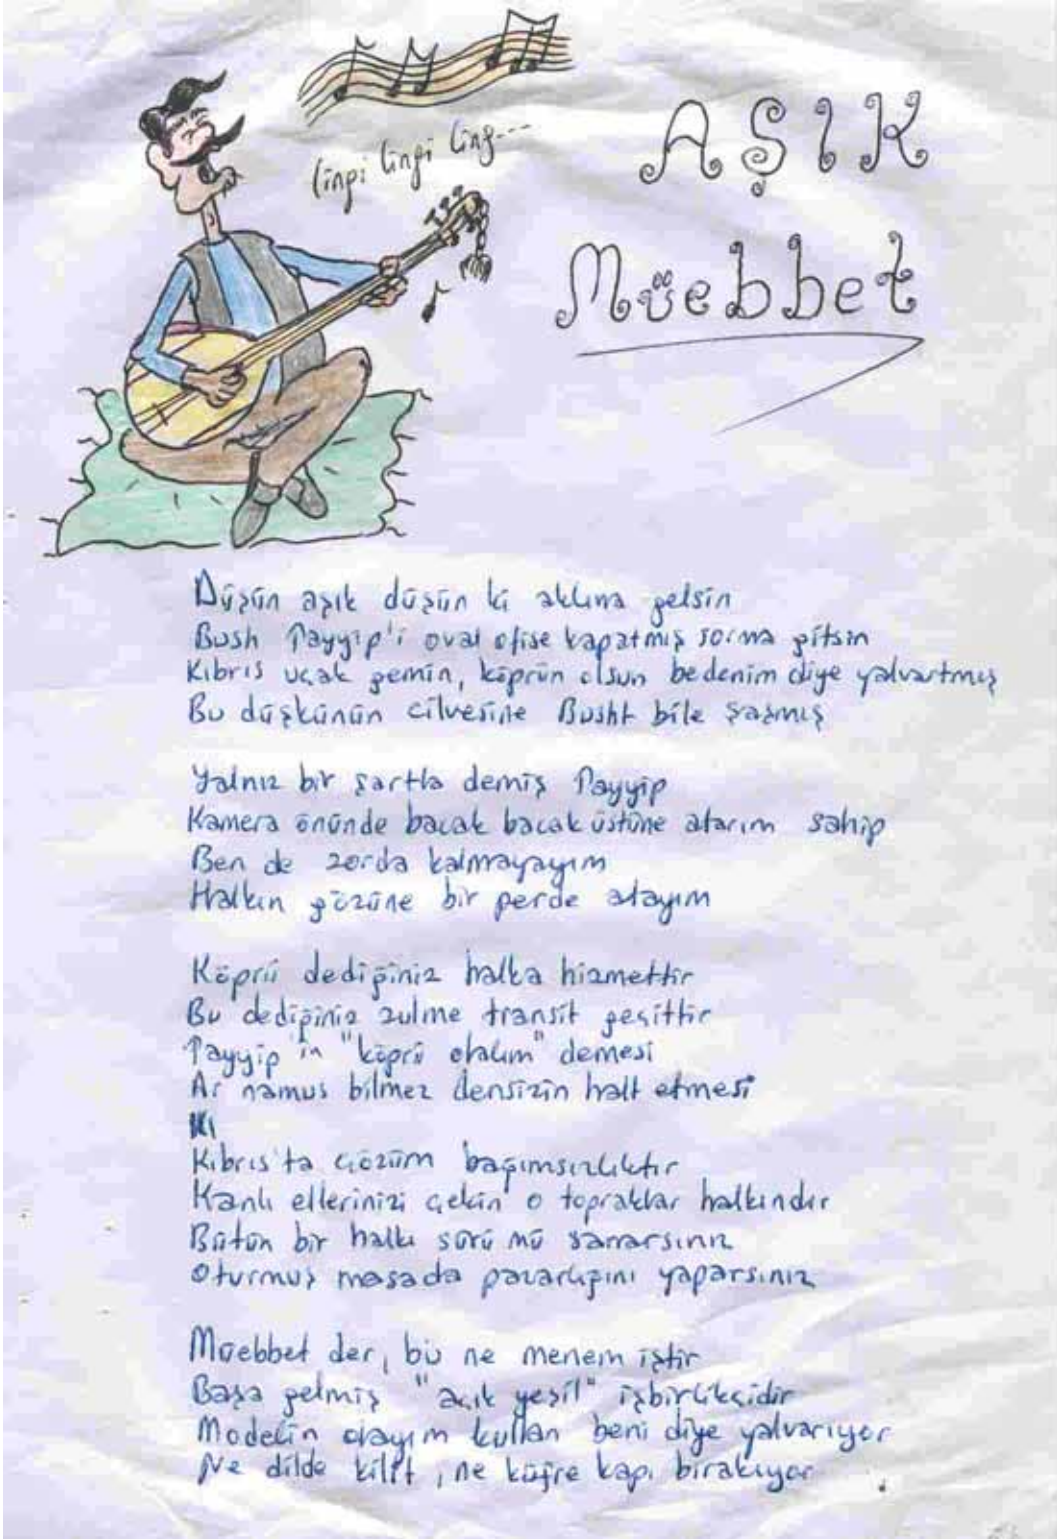 AŞIK
Müebbet
lingi lingi ling---
Düşün aşık düşün ki aklına gelsin
Bush Tayyip'i oval ofise kapatmış sorma gitsin
Kıbrıs uçak gemin, köprün olsun bedenim diye yalvartmış
Bu düşkünün cilvesine Busht bile şaşmış
Yalnız bir şartla demiş Tayyip
Kamera önünde bacak bacak üstüne atarım sahip
Ben de zorda kalmayayım
Halkın gözüne bir perde atayım
Köprü dediğiniz halka hizmettir
Bu dediğiniz zulme transit geçittir
Tayyip'in "köprü olalım" demesi
Ar namus bilmez densizin halt etmesi
Kı
Kıbrıs'ta çözüm bağımsızlıktır
Kanlı ellerinizi çekin o topraklar halkındır
Bütün bir halkı sürü mü sanarsınız
Oturmuş masada pazarlığını yaparsınız
Müebbet der, bu ne menem iştir
Başa gelmiş "açık yeşil" işbirlikçidir
Modelin olayım kullan beni diye yalvarıyor
Ne dilde kilit, ne küfre kapı bırakıyor